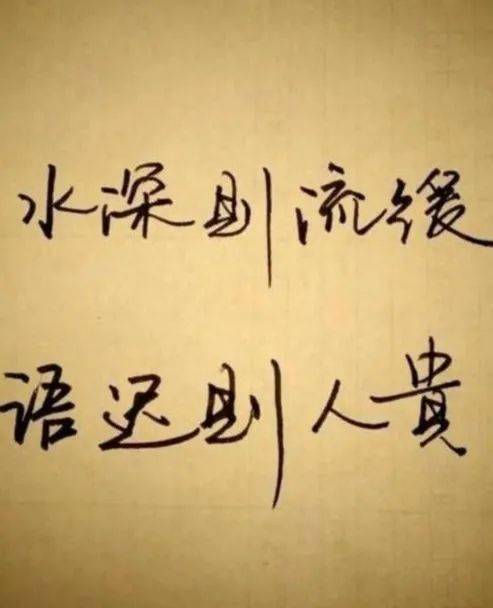 水深则流缓
语迟则人貴